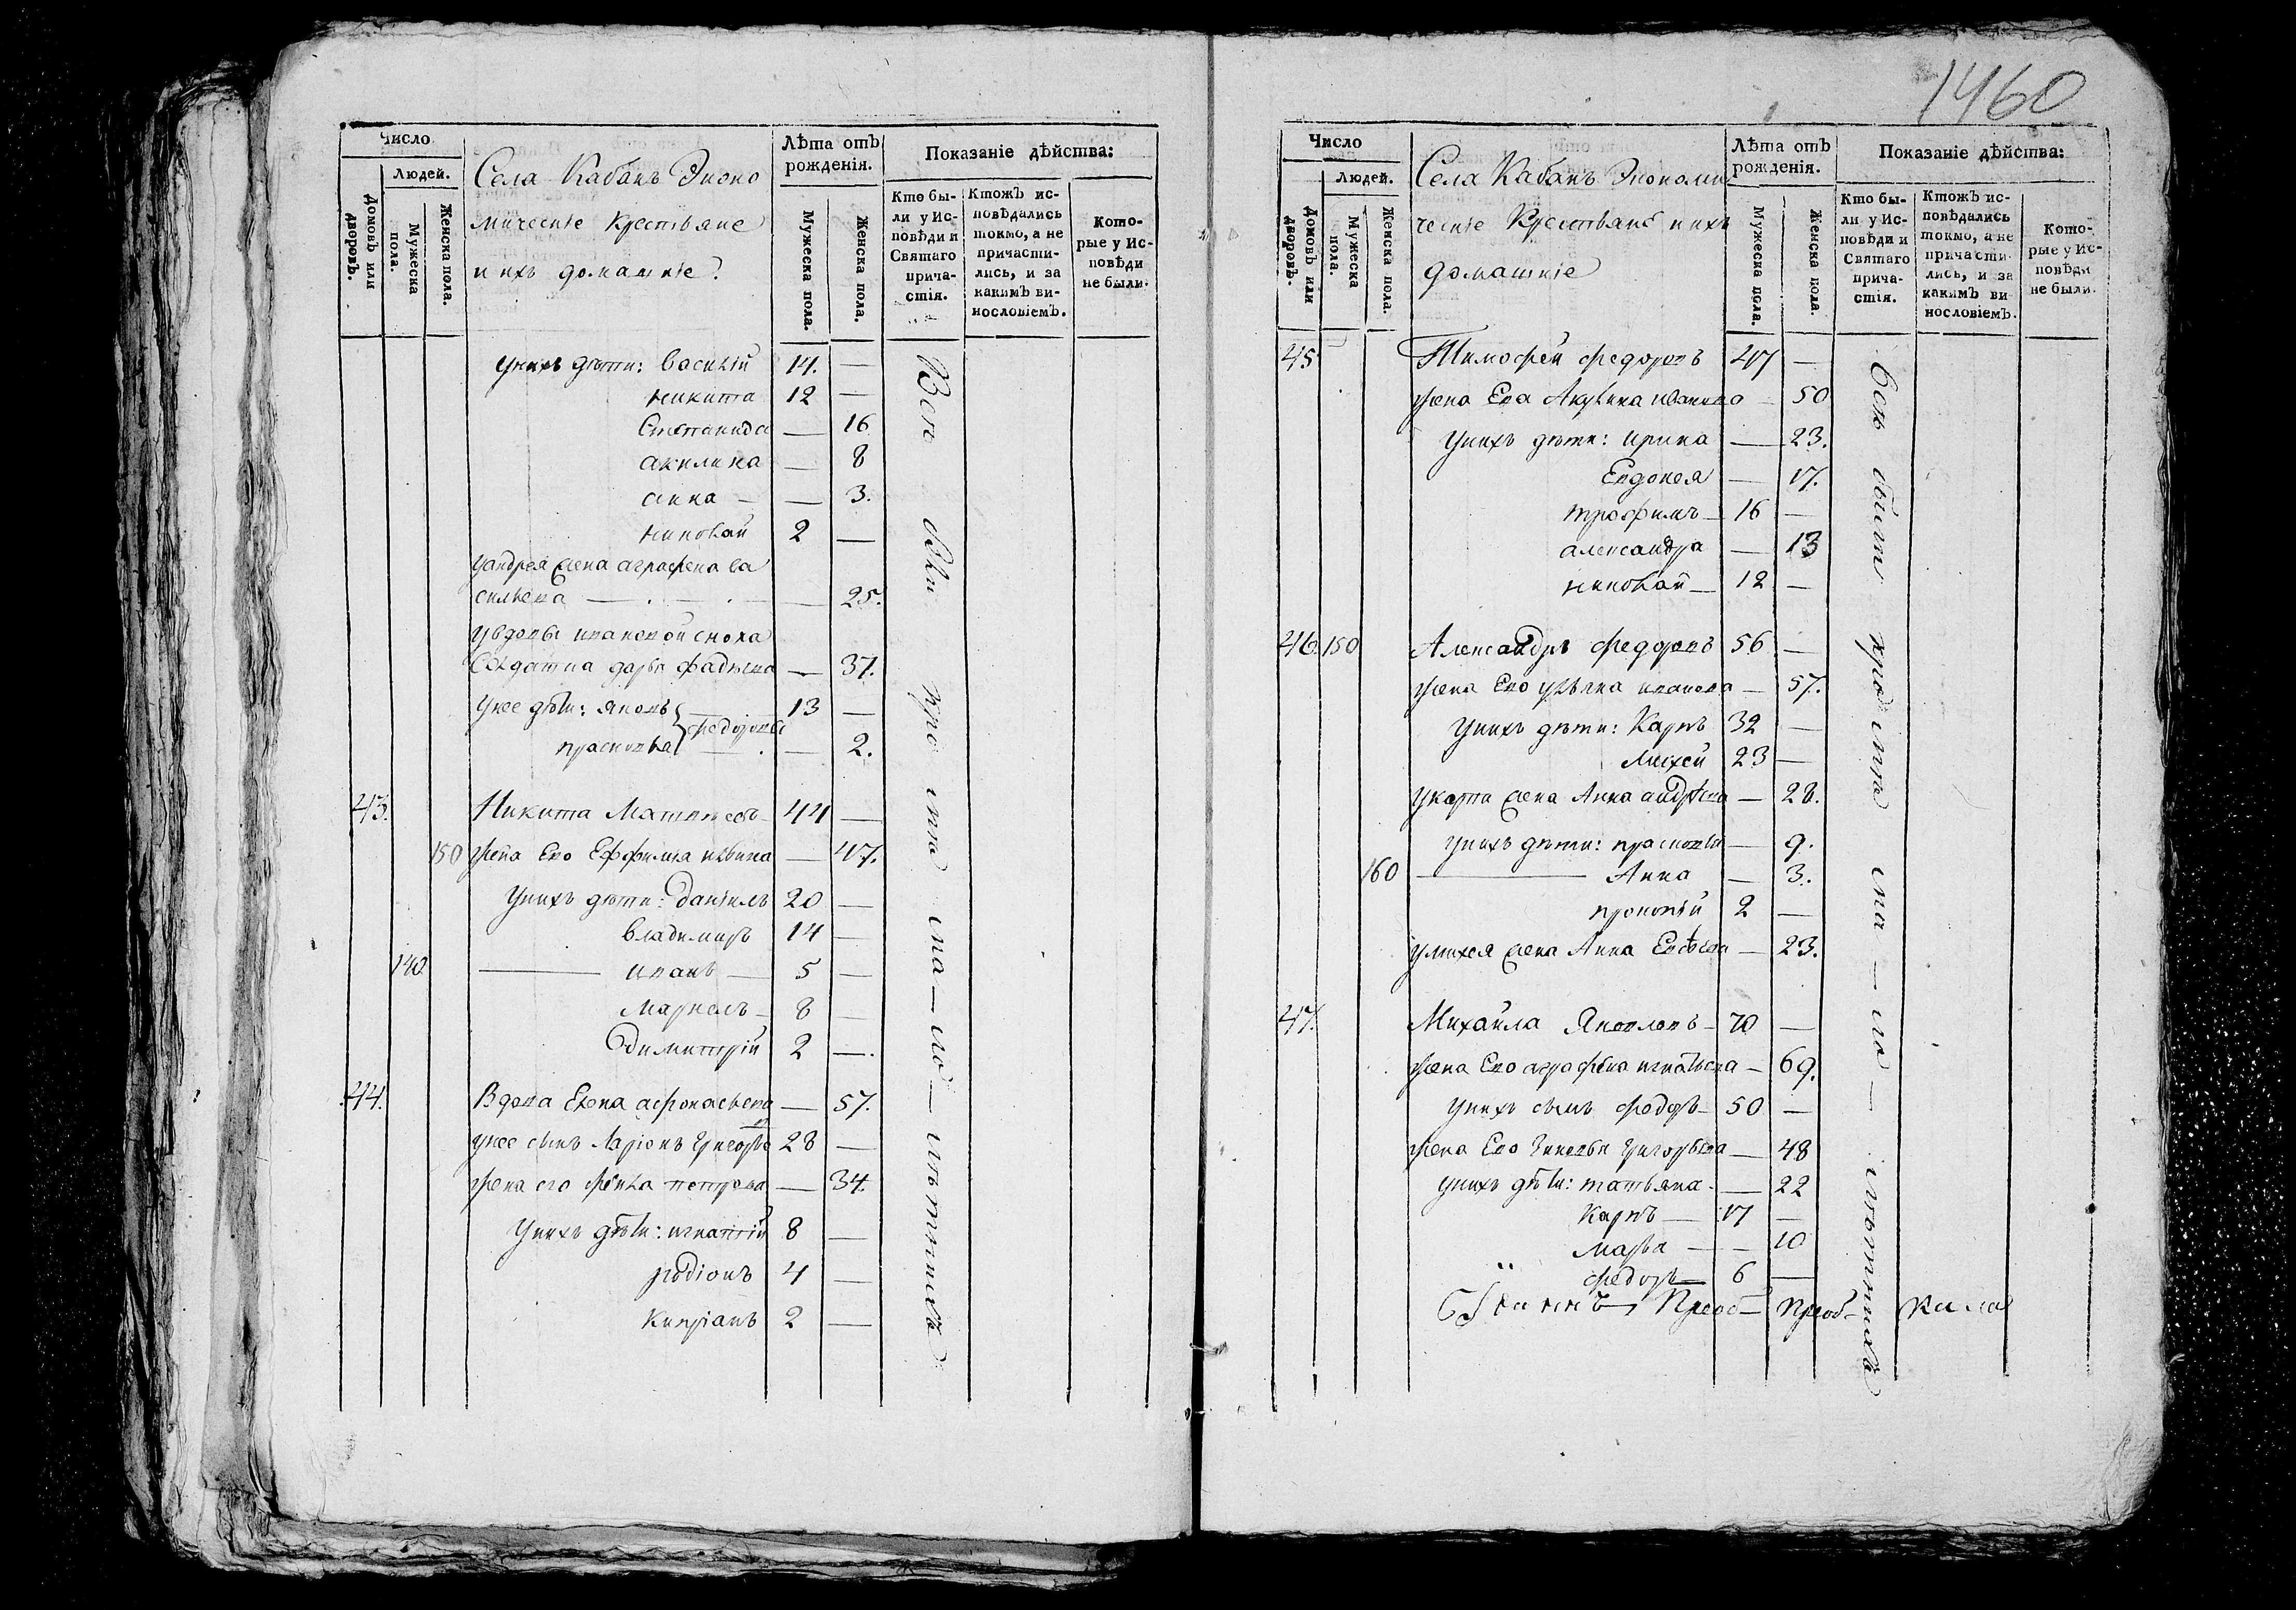 Число
Людей.
Домовъ или дворовъ.
Мужеска пола.
Женска пола.
Села Кабанъ Эконо
мическіе Крестьяне
и ихъ домашніе
Лѣта отъ рожденія.
Мужеска пола.
Женска пола.
Показаніе дѣйства:
Кто бы-
ли у Ис-
повѣди и
Святаго
прича-
стія.
Ктожъ ис-
повѣдались
токмо, а не
причасти-
лись, и за
какимъ ви-
нословіемъ.
Кото-
рые у Ис-
повѣди
не были.
У нихъ дѣти: Василій 14. —
Никита 12 —
Степанида — 16
акилина — 8
анна — — 3.
николай 2 —
У андрея жена аграфена ва
сильева — — 25.
У вдовы ивановой сноха
Солдатка дарья фадѣева — 37.
У нее дѣти: яковъ — 13 —
федоровы
прасковья — — 2.
43. Никита Матвѣевъ 44 —
150 жена Ево Еффимиа — 47.
У нихъ дѣти: Даніилъ 20 —
владимиръ 14 —
140 — иванъ — 5 —
Маркелъ 8 —
Димитрій 2 —.
44. Вдова Елена афонасьева — 57.
У нее сынъ Ларіонъ Григорьевъ 28 —
жена его фекла петрова — 34.
У нихъ дѣти: игнатій 8 —
родіонъ 4 —
Кипріанъ 2 —
Вси были кроме ма — ло — лѣтнихъ
1460
Число
Людей.
Домовъ или дворовъ.
Мужеска пола.
Женска пола.
Села Кабанъ Экономи
ческіе Крестьяне и ихъ
домашніе
Лѣта отъ рожденія.
Мужеска пола.
Женска пола.
Показаніе дѣйства:
Кто бы-
ли у Ис-
повѣди и
Святаго
прича-
стія.
Ктожъ ис-
повѣдались
токмо, а не
причасти-
лись, и за
какимъ ви-
нословіемъ.
Кото-
рые у Ис-
повѣди
не были.
45 Тимофей федоровъ 47 —
жена Ево Акулина иванова — 50
У нихъ дѣти: ирина — 23.
Евдокея — 17.
трофимъ — 16 —
александра — 13
николай — 12 —
46. 150 Александръ федоровъ 56 —
жена Ево ульяна иванова — 57.
У нихъ дѣти: Карпъ 32 —
Михей 23 —
У карпа жена Анна андрѣева — 28.
У нихъ дѣти: прасковья — 9.
160 — Анна — 3.
прокопій 2 —
У михея жена Анна — 23.
47. Михайла Яковлевъ — 70 —
жена Ево аграфена игнатьева — 69.
У нихъ сынъ федоръ — 50 —
жена Ево Зиновья григорьева — 48
У нихъ дѣти: татьяна — 22
Карпъ — 17 —
Марья — — 10
федоръ — 6 —
Всѣ были кроме ма — ло — лѣтнихъ